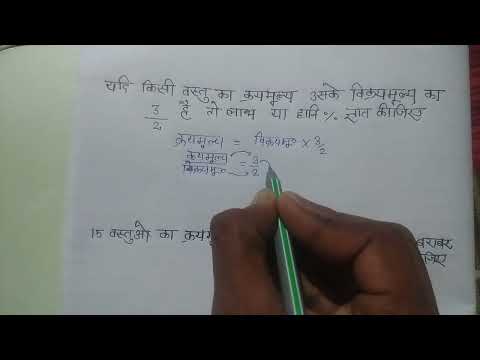 यदि किसी वस्तु का क्रयमूल्य उसके विक्रयमूल्य का
3/2 है तो लाभ या हानि % ज्ञात कीजिए
क्रयमूल्य = विक्रयमूल्य × 3/2
क्रयमूल्य/विक्रयमूल्य = 3/2
15 वस्तुओ का बराबर